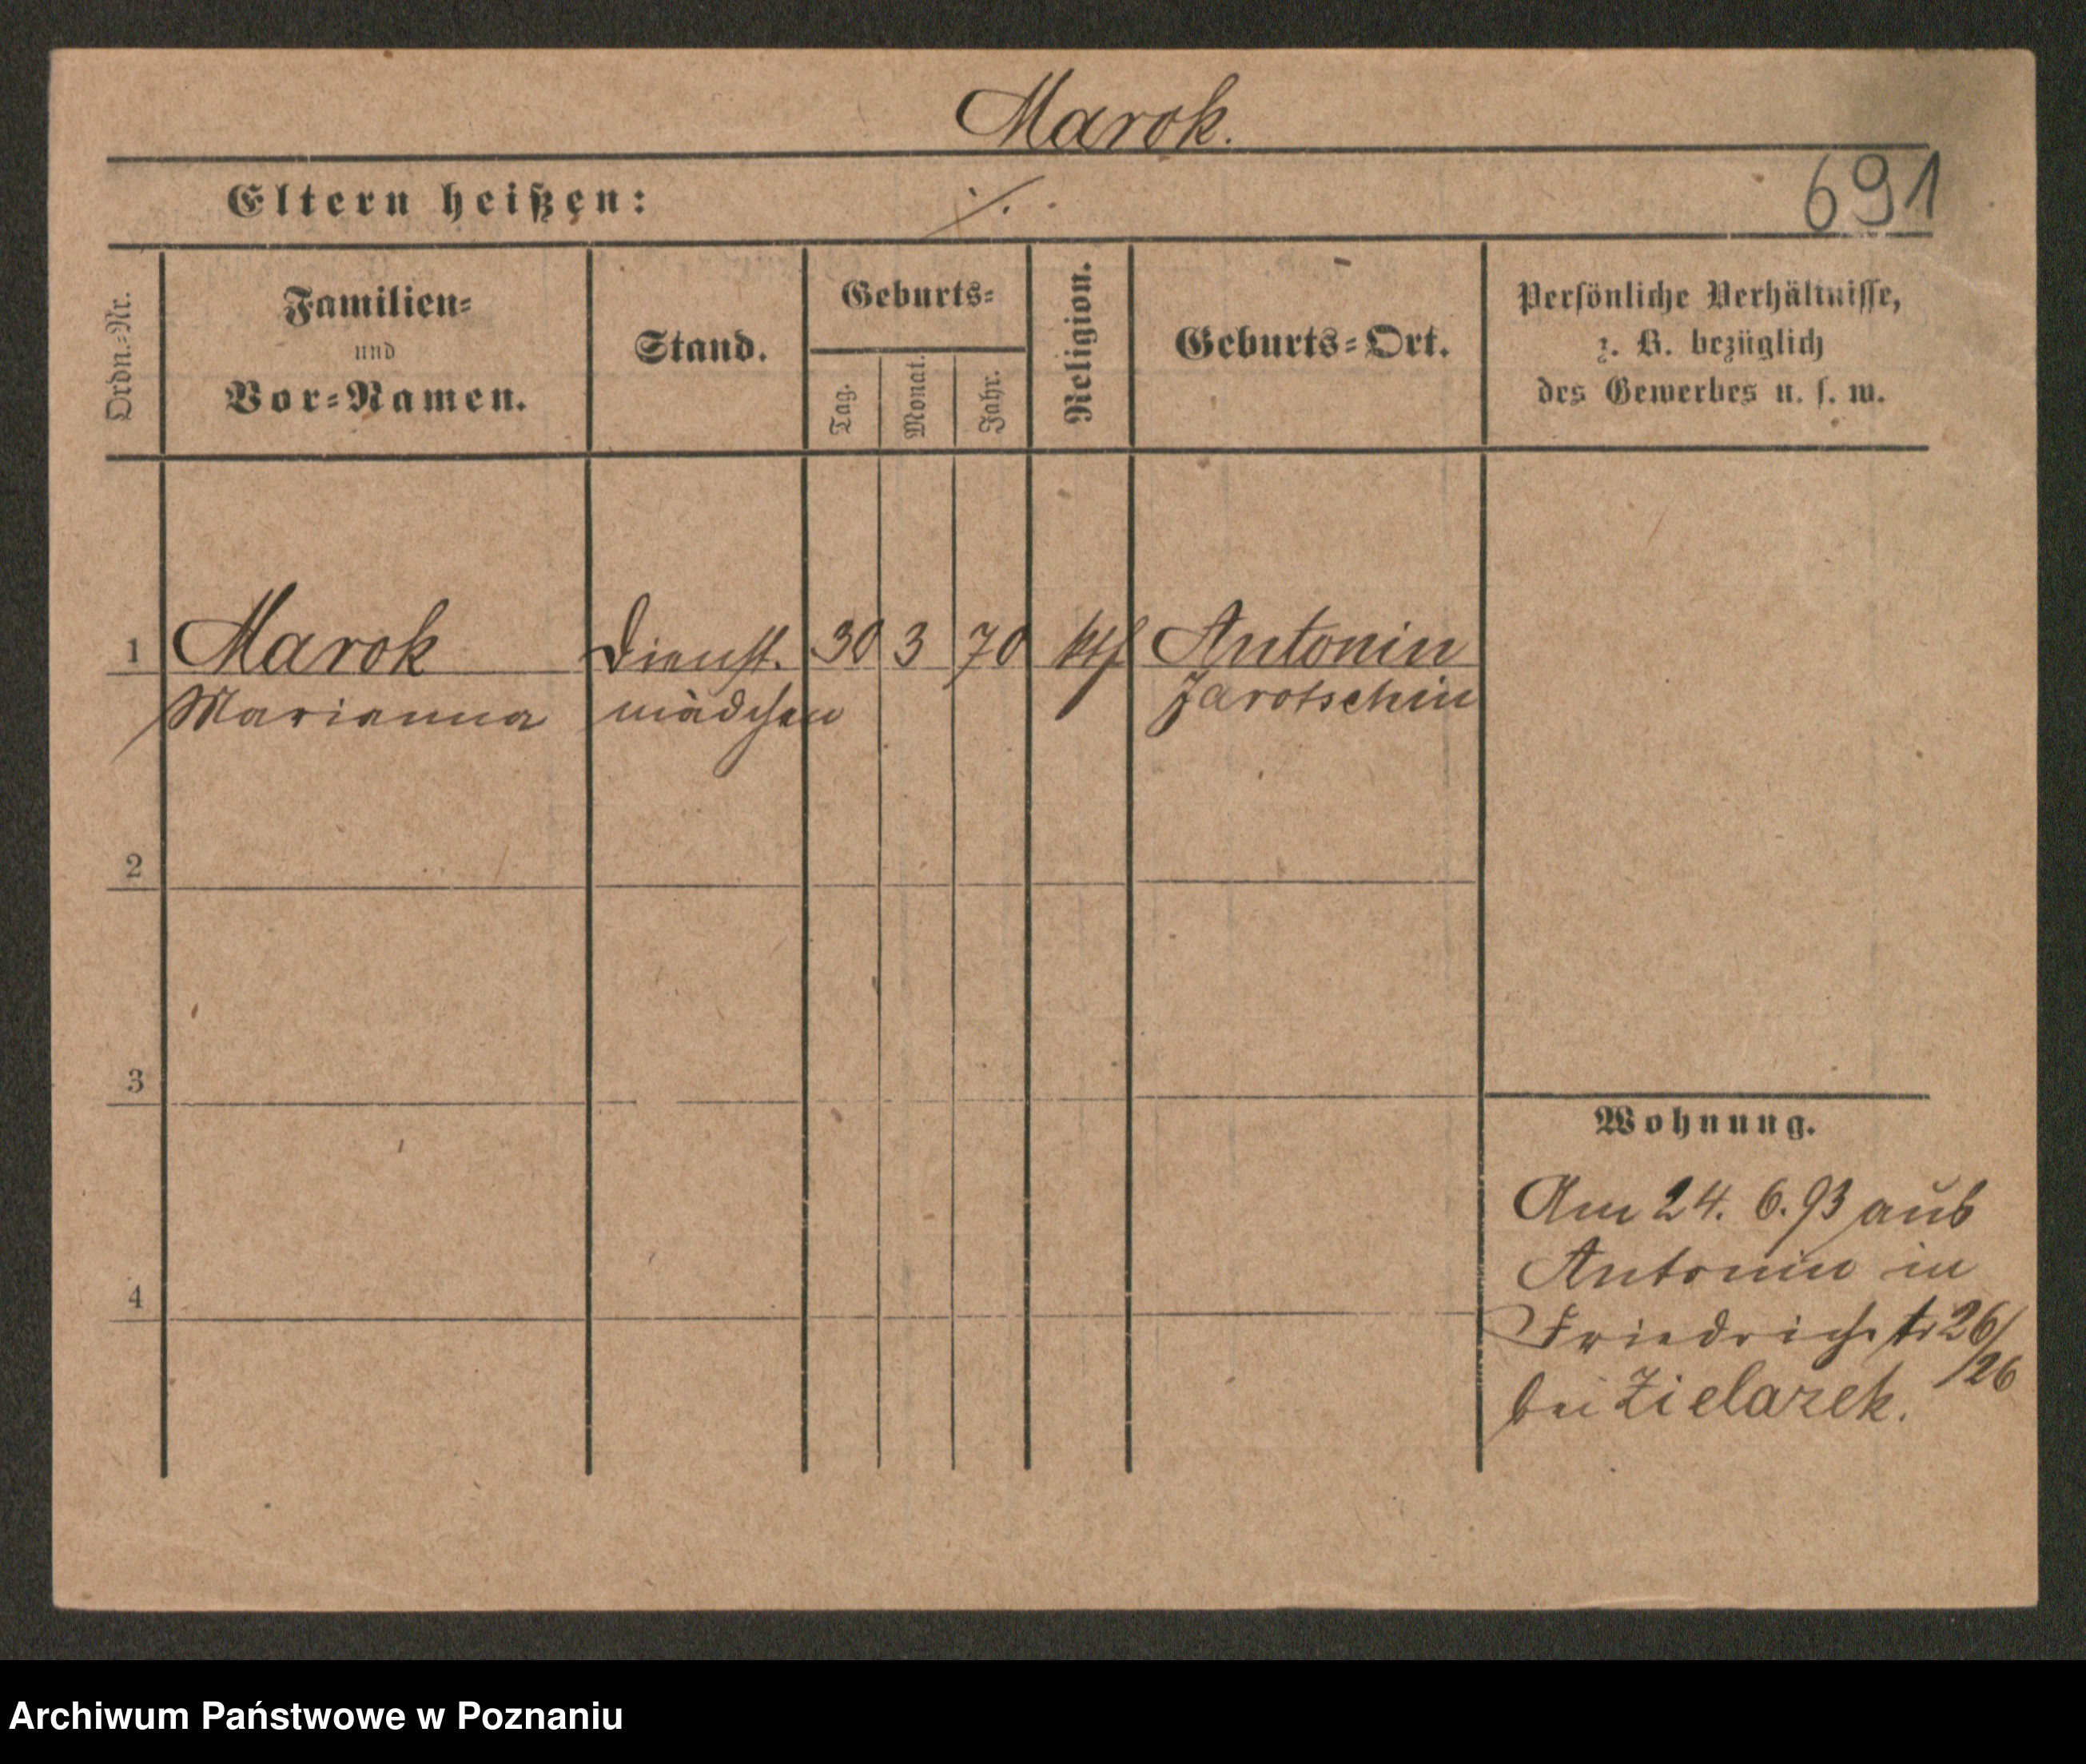 Marok.
Eltern heißen: ./.
691
Ordn.-Nr.
Familien=
und
Vor=Namen.
Stand.
Geburts=
Tag.
Monat.
Jahr.
Religion.
Geburts=Ort.
Persönliche Verhältnisse,
z. B. bezüglich
des Gewerbes u. s. w.
1 Marok Dienst. 30 3 70 kth Antonin
Marianna mädchen Jarotschin
2
3
4
Wohnung.
Am 24. 6. 93 aus
Antonin in
Friedrichstr 26/
/26
bei Zielazek.
Archiwum Państwowe w Poznaniu